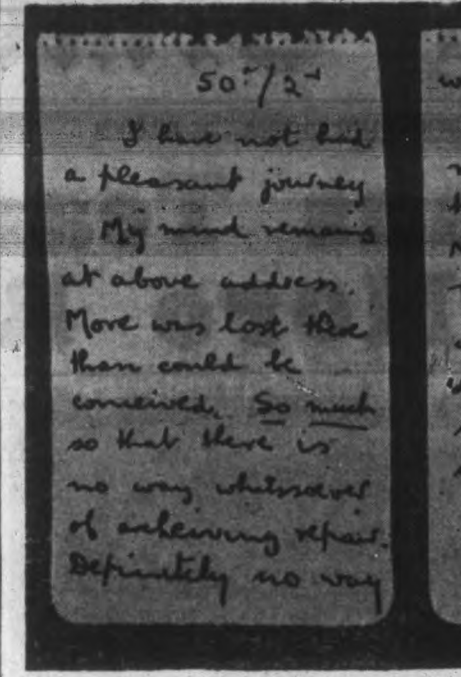 50/2
I have not had
a pleasant journey
My mind remains
at above address.
More was lost there
than could be
conceived. So much
so that there is
no way whatsoever
of acheiving repair.
Definitely no way